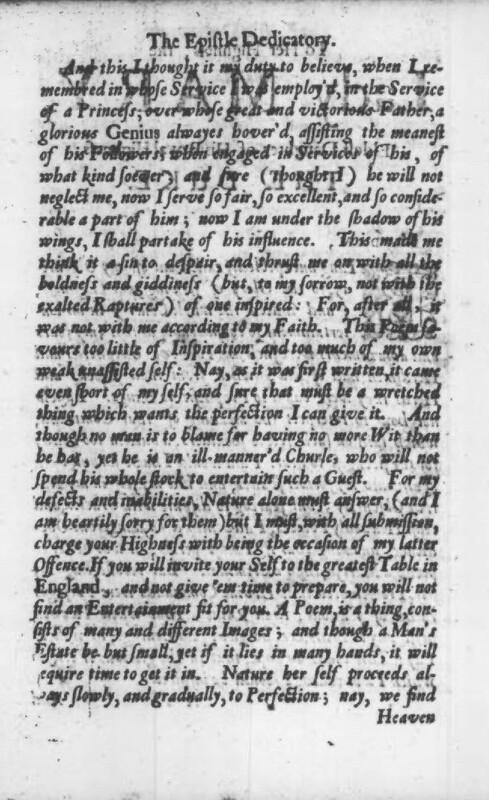 The Epistle Dedicatory.
And this I thought it my duty to believe, when I re-
membred in whose Service I was employ'd, in the Service
of a Princess; over whose great and victorious Father, a
glorious Genius alwayes hover'd, assisting the meanest
of his Followers, when engaged in Services of his, of
what kind soever; and sure (thought I) he will not
neglect me, now I serve so fair, so excellent, and so conside-
rable a part of him; now I am under the shadow of his
wings, I shall partake of his influence. This made me
think it a sin to despair, and thrust me on, with all the
boldness and giddiness (but, to my sorrow, not with the
exalted Raptures) of one inspired: For, after all, it
was not with me according to my Faith. This Poem sa-
vours too little of Inspiration, and too much of my own
weak unassisted self: Nay, as it was first written, it came
even short of my self, and sure that must be a wretched
thing, which wants the perfection I can give it. And
though no man is to blame for having no more Wit than
he has, yet he is an ill-manner'd Churle, who will not
spend his whole stock to entertain such a Guest. For my
defects and inabilities, Nature alone must answer, (and I
am heartily sorry for them) but I must, with all submission,
charge your Highness with being the occasion of my latter
Offence. If you will invite your Self to the greatest Table in
England, and not give 'em time to prepare, you will not
find an Entertainment fit for you. A Poem, is a thing, con-
sists of many and different Images; and though a Man's
Estate be but small, yet if it lies in many hands, it will
equire time to get it in. Nature her self proceeds al-
ways slowly, and gradually, to Perfection; nay, we find
Heaven